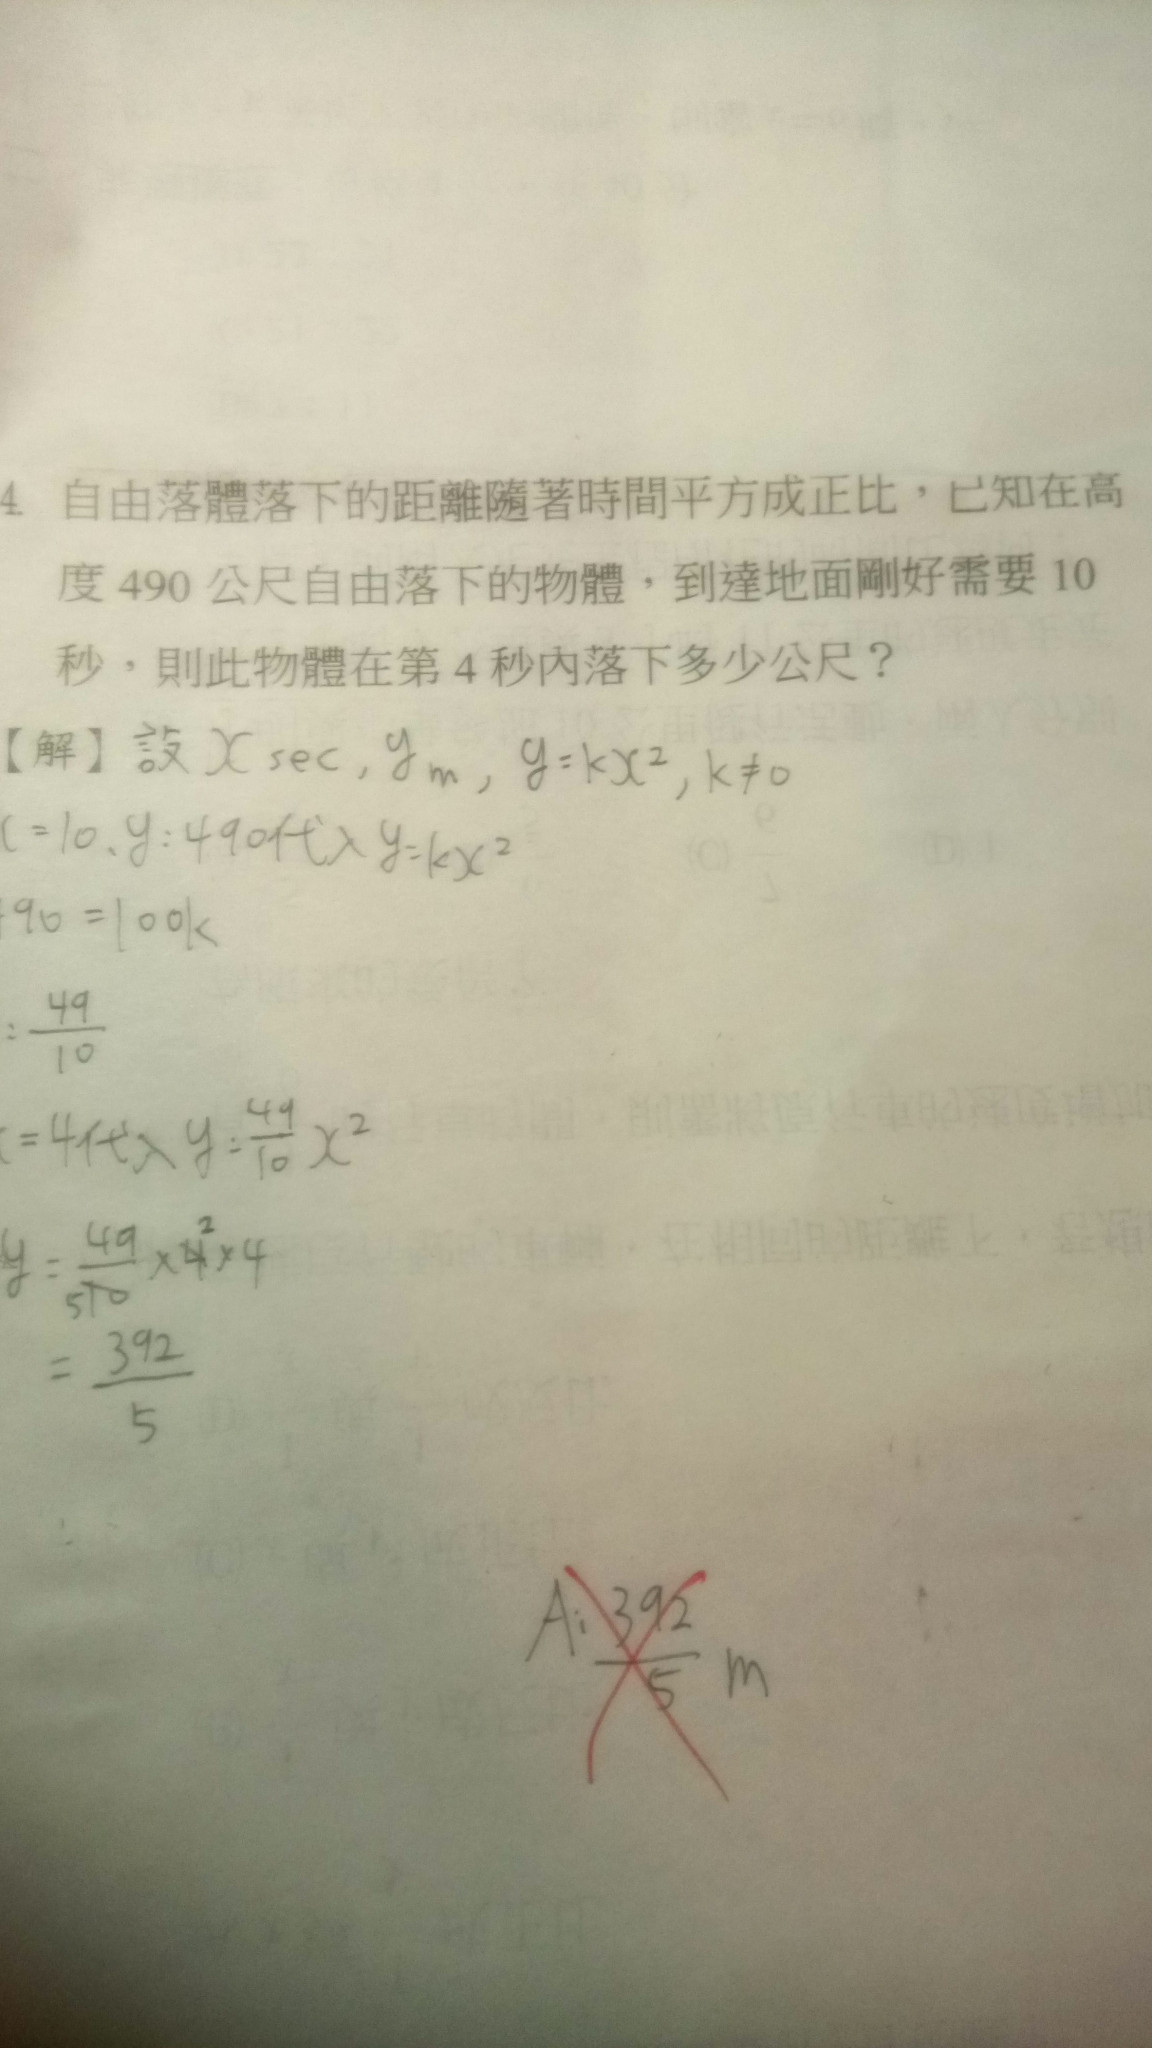 4. 自由落體落下的距離隨著時間平方成正比，已知在高
度 490 公尺自由落下的物體，到達地面剛好需要 10
秒，則此物體在第 4 秒內落下多少公尺？
【解】設 x sec, y m, y=kx², k≠0
x=10、y=490代入 y=kx²
490=100k
= 49/10
x=4代入 y=49/10 x²
y = 49/10 × 4 × 4
5 2
= 392/5
A: 392/5 m